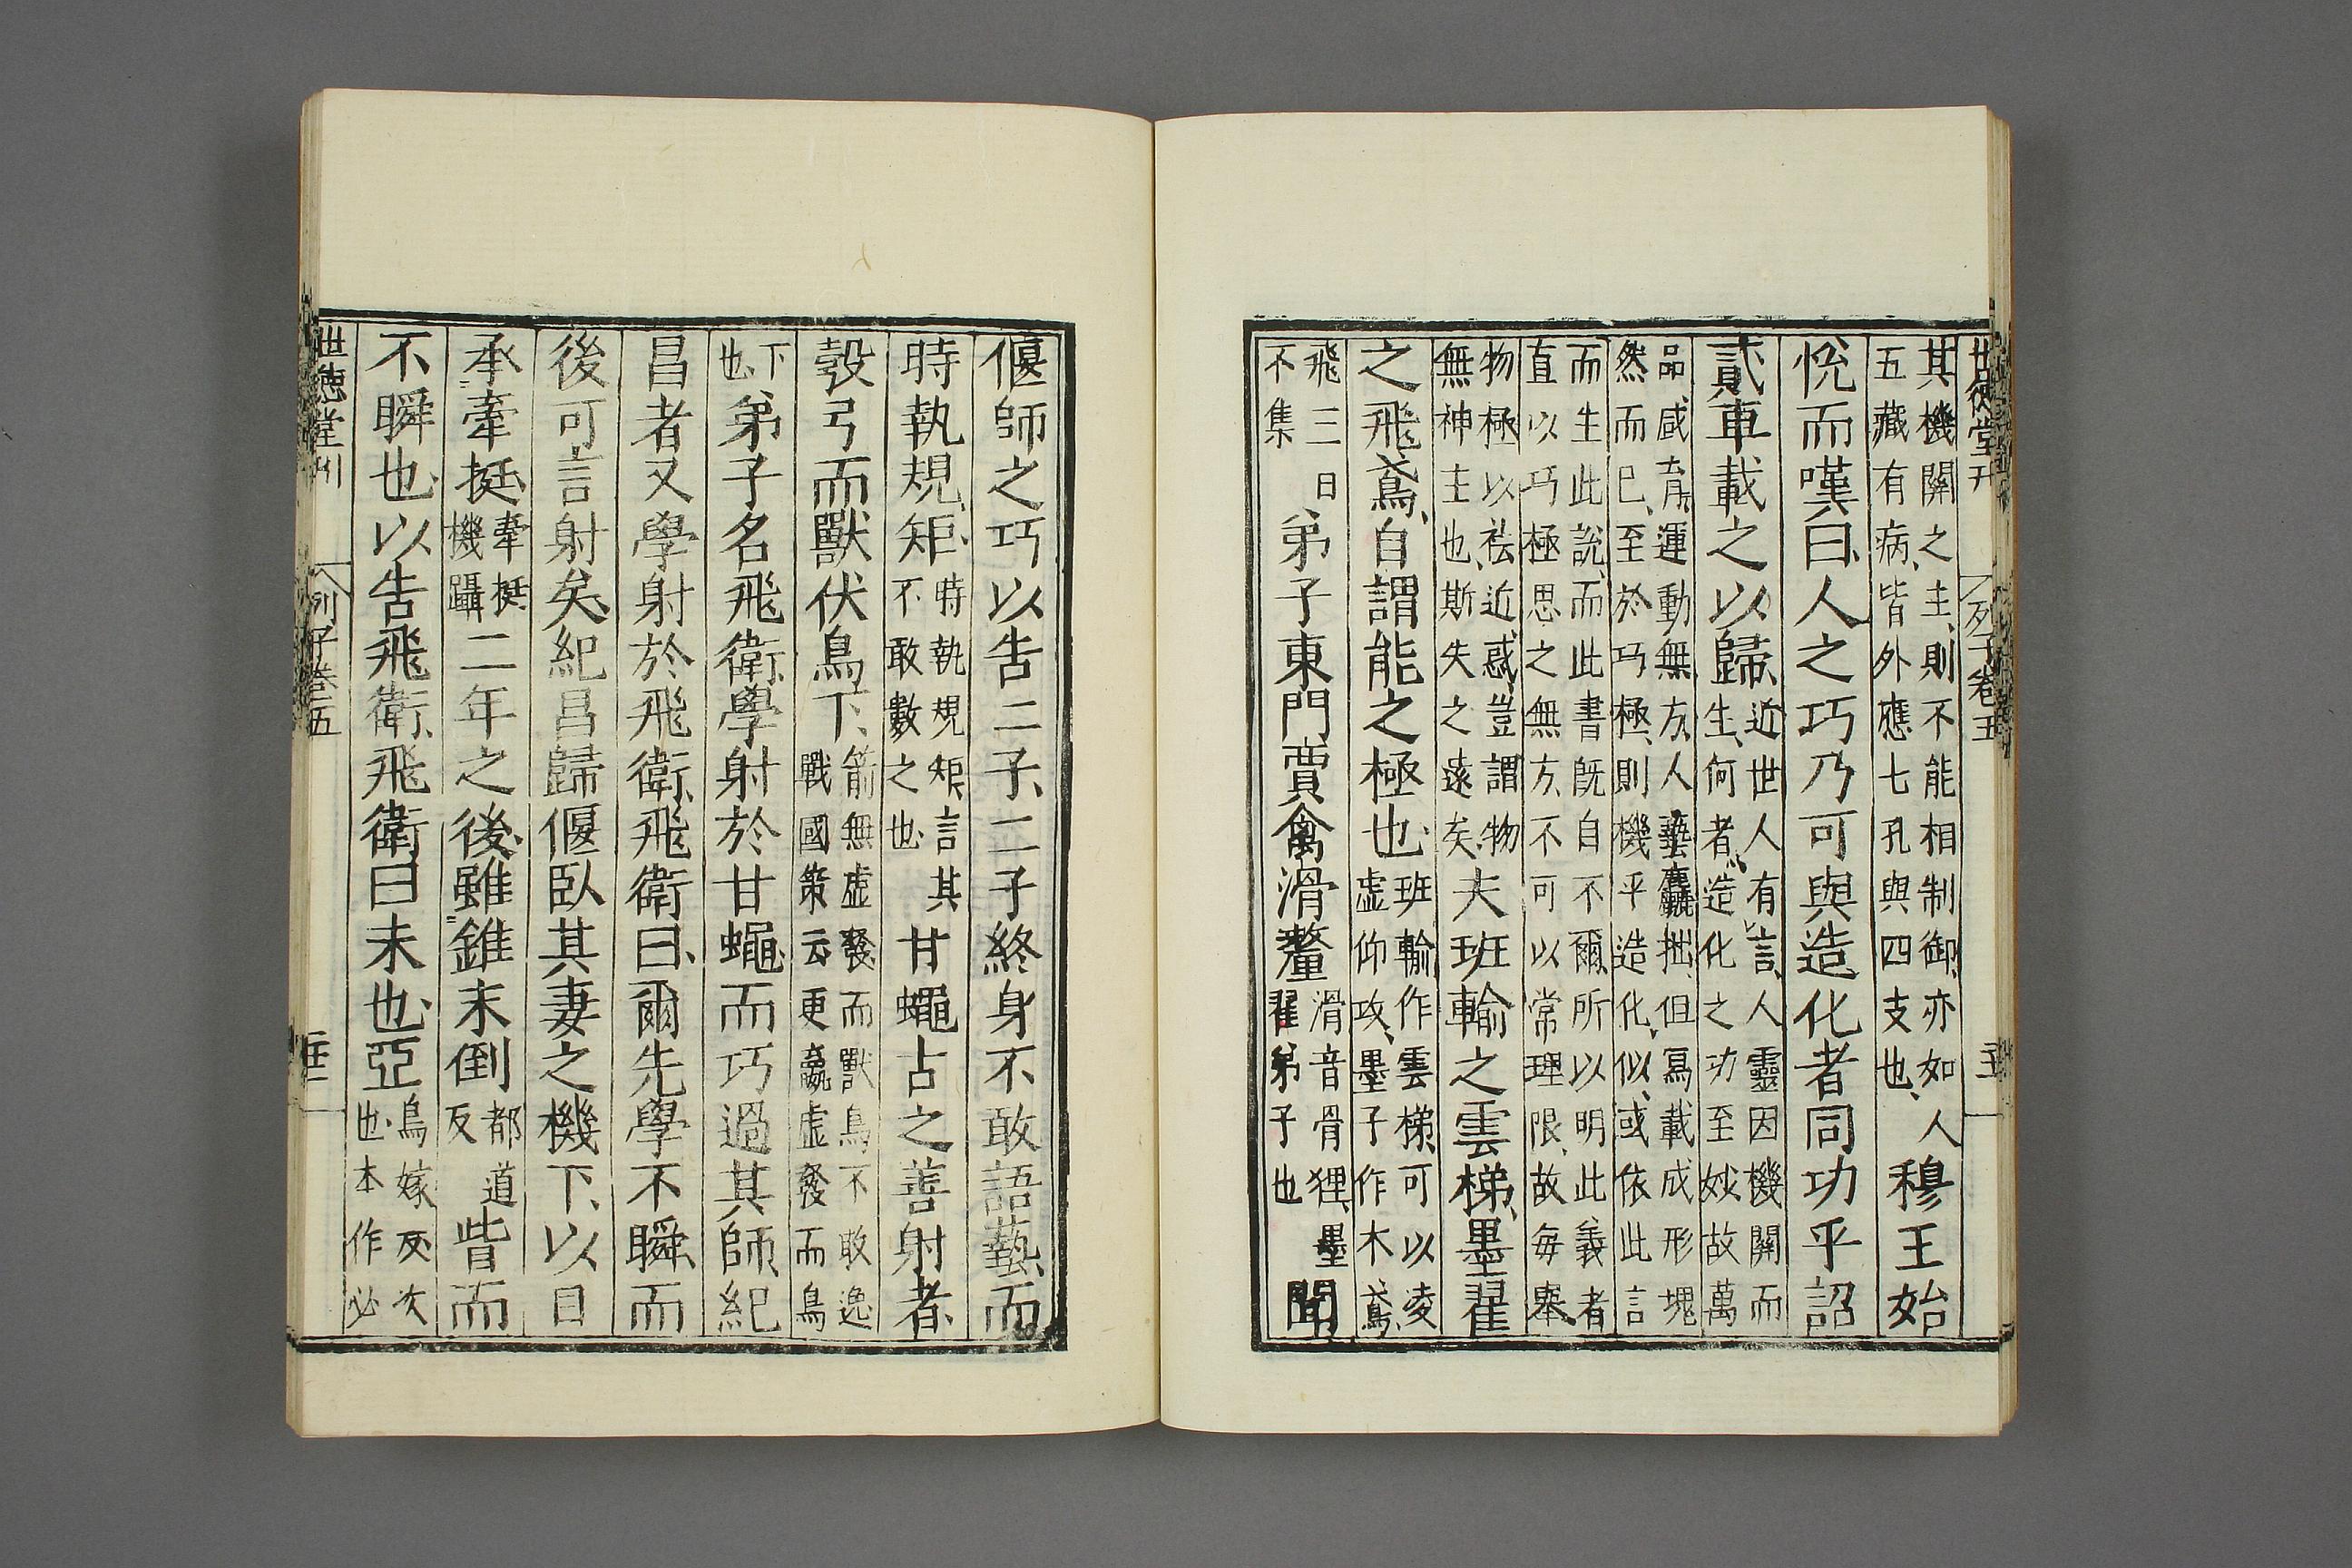 世德堂刊　列子卷五
其機關之主則不能相制御亦如人
五藏有病皆外應七孔與四支也
穆王始
悅而嘆曰人之巧乃可與造化者同功乎詔
貳車載之以歸
近世人有言人靈因機關而
生何者造化之功至妙故萬
品咸育運動無方人藝麤拙但寫載成形塊
然而已至於巧極則機乎造化似或依此言
而生此說而此書既自不爾所以明此義者
直以巧極思之無方不可以常理限故每舉
物極以祛近惑豈謂物
無神主也斯失之遠矣
夫班輸之雲梯墨翟
之飛鳶自謂能之極也
班輸作雲梯可以凌
虛仰攻墨子作木鳶
飛三日
不集
弟子東門賈禽滑釐
滑音骨狸墨
翟弟子也
聞
偃師之巧以告二子二子終身不敢語藝而
時執規矩
時執規矩言其
不敢數之也
甘蠅古之善射者
彀弓而獸伏鳥下
箭無虛發而獸鳥不敢逸
戰國策云更羸虛發而鳥
下
也
弟子名飛衛學射於甘蠅而巧過其師紀
昌者又學射於飛衛飛衛曰爾先學不瞬而
後可言射矣紀昌歸偃臥其妻之機下以目
承牽挺
牽挺
機躡
二年之後雖錐末倒
都道
反
眥而
不瞬也以告飛衛飛衛曰未也亞
烏嫁反次
也本作必
世德堂刊　列子卷五